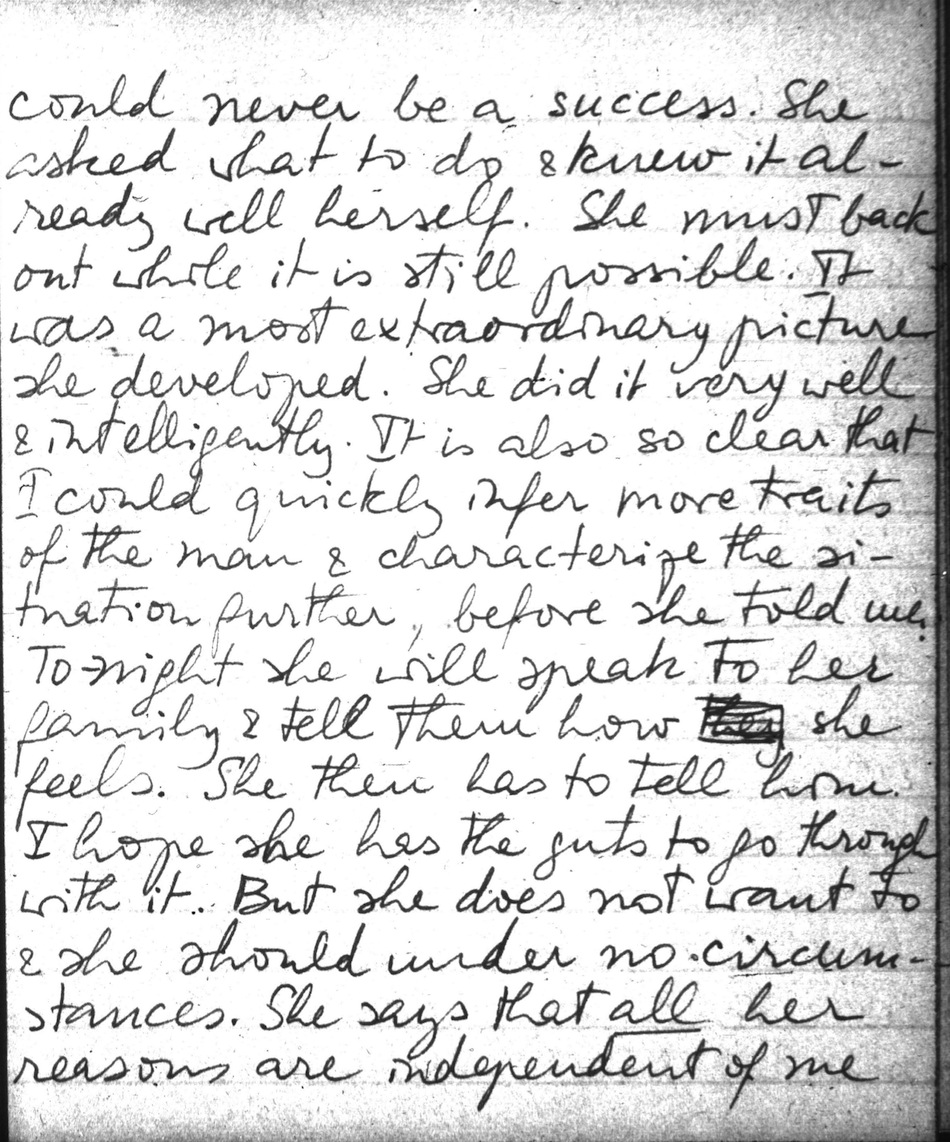 could never be a success. She
asked what to do & knew it al-
ready well herself. She must back
out while it is still possible. It
was a most extraordinary picture
she developed. She did it very well
& intelligently. It is also so clear that
I could quickly infer more traits
of the man & characterize the si-
tuation further, before she told me.
To-night she will speak to her
family & tell them how she
feels. She then has to tell him.
I hope she has the guts to go through
with it. But she does not want to
& she should under no circum-
stances. She says that all her
reasons are independent of me